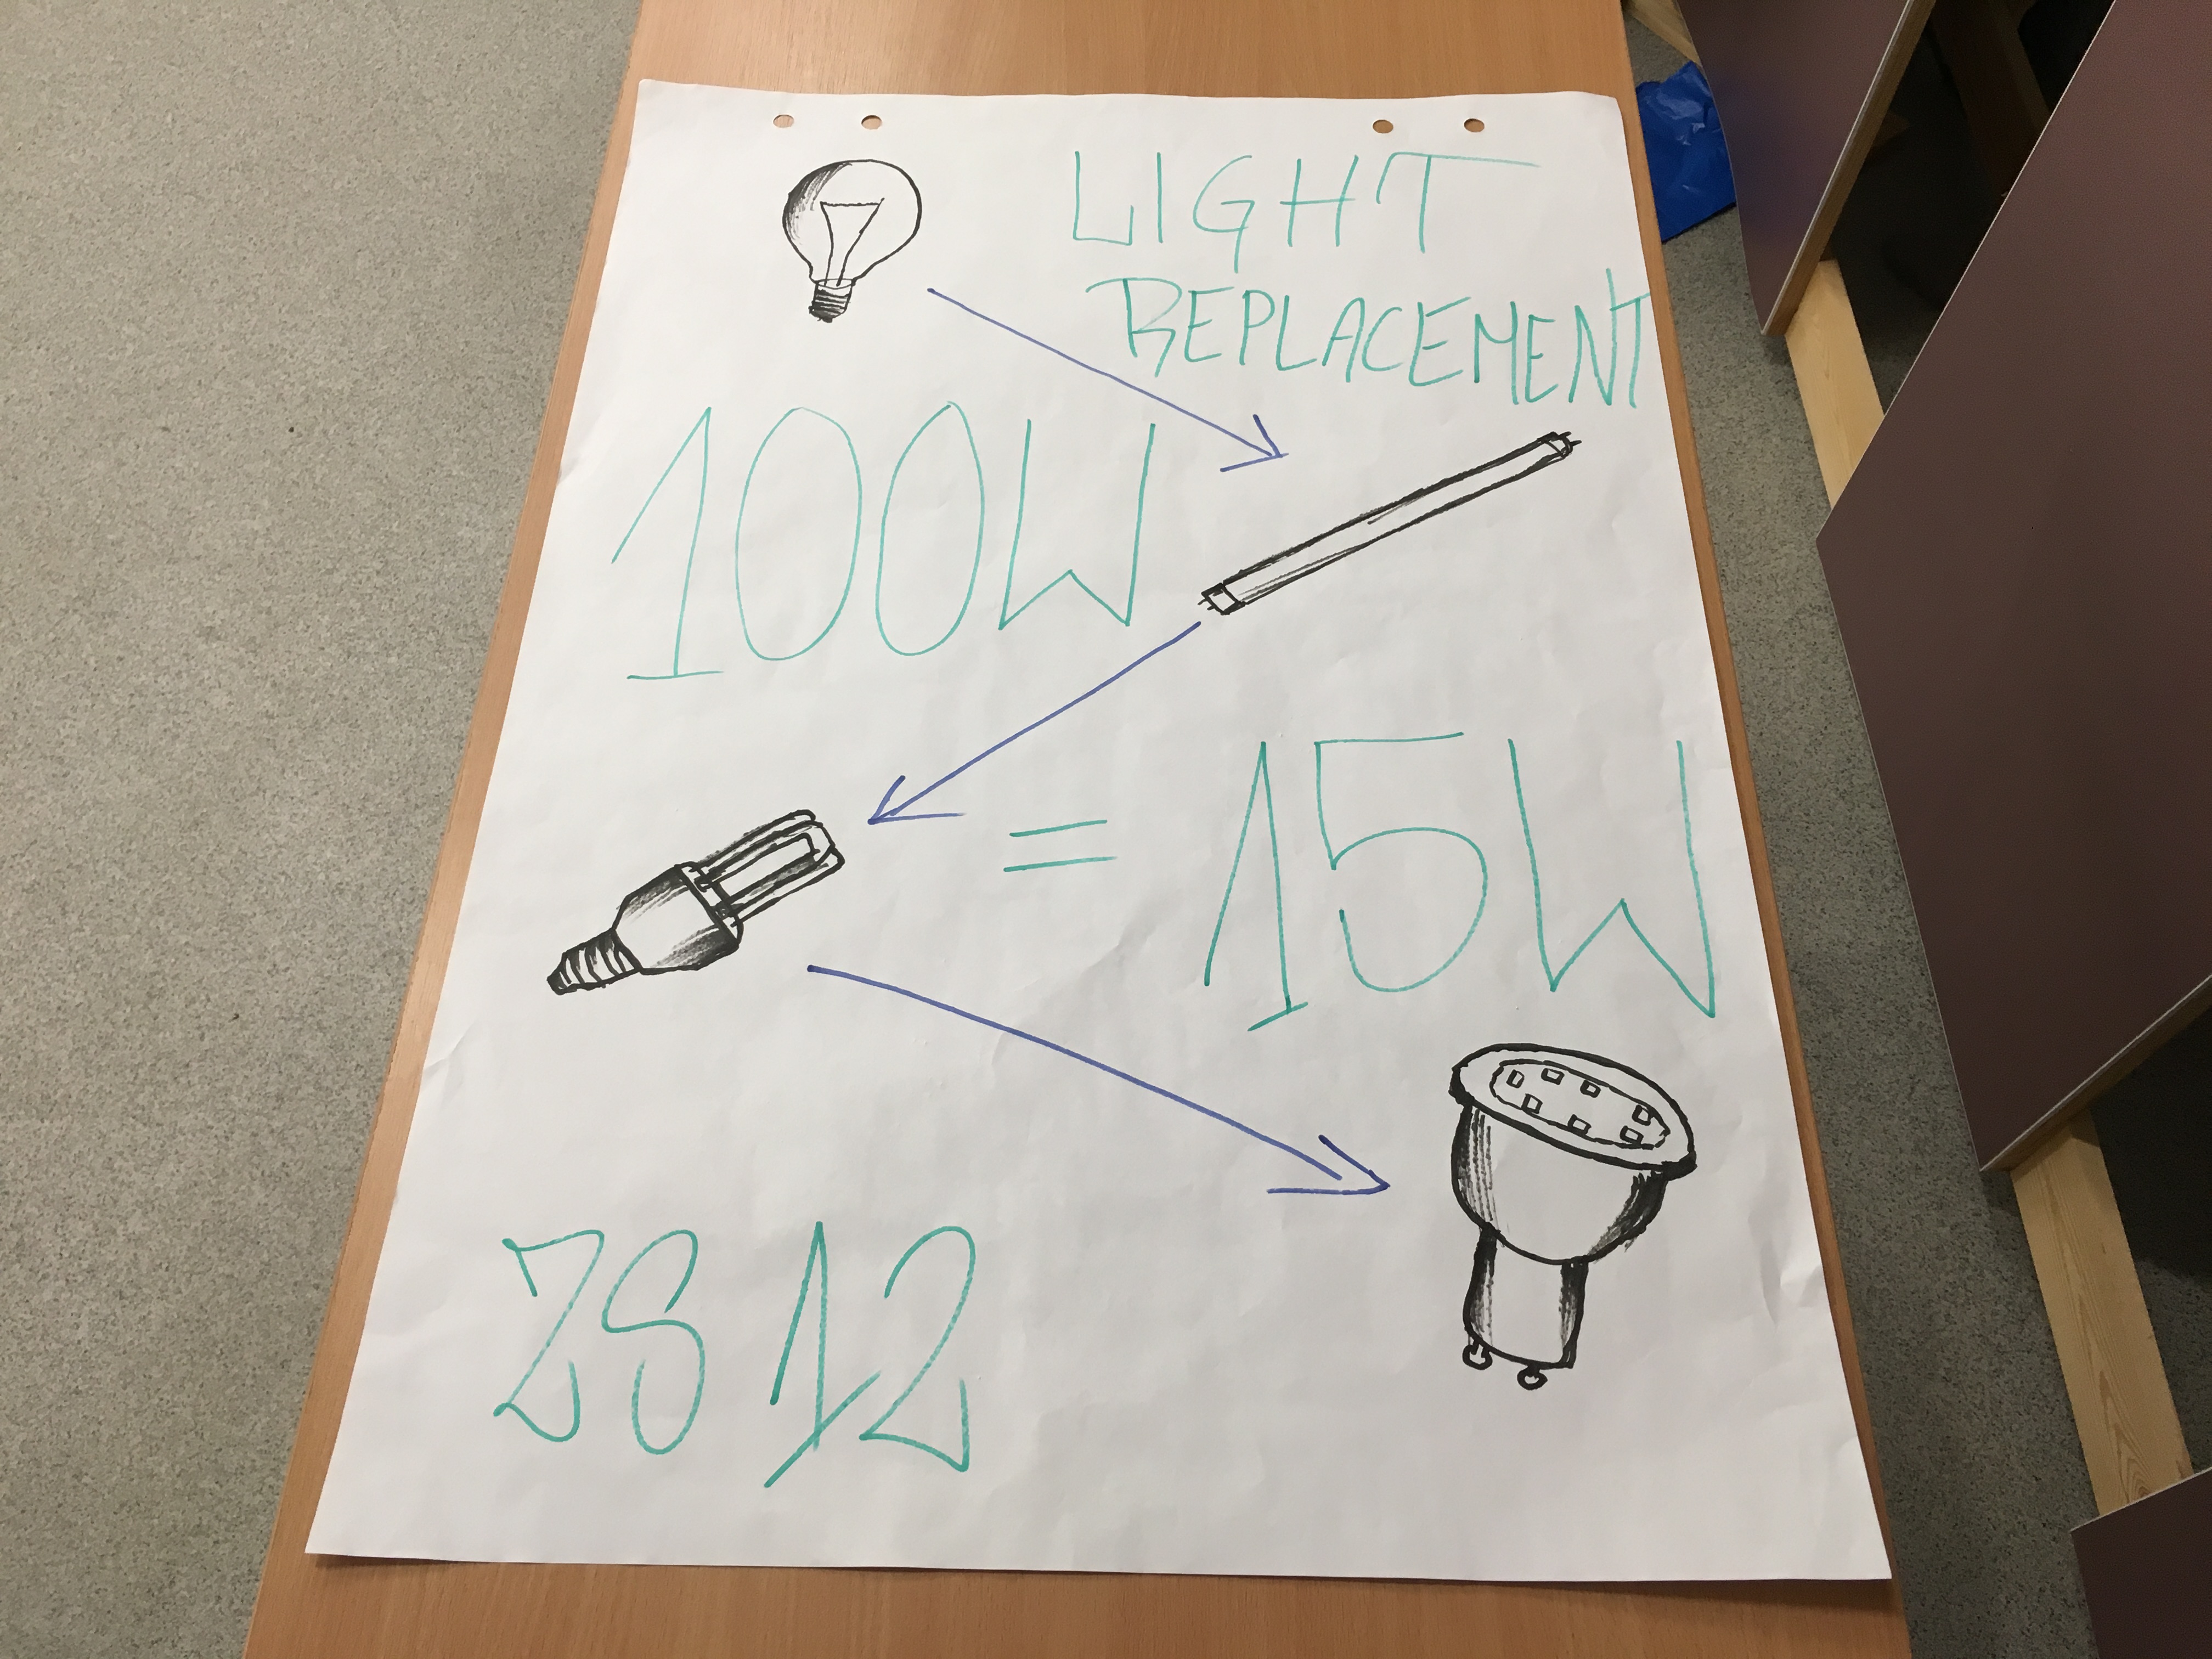 LIGHT
REPLACEMENT
100W
= 15W
ZS 12